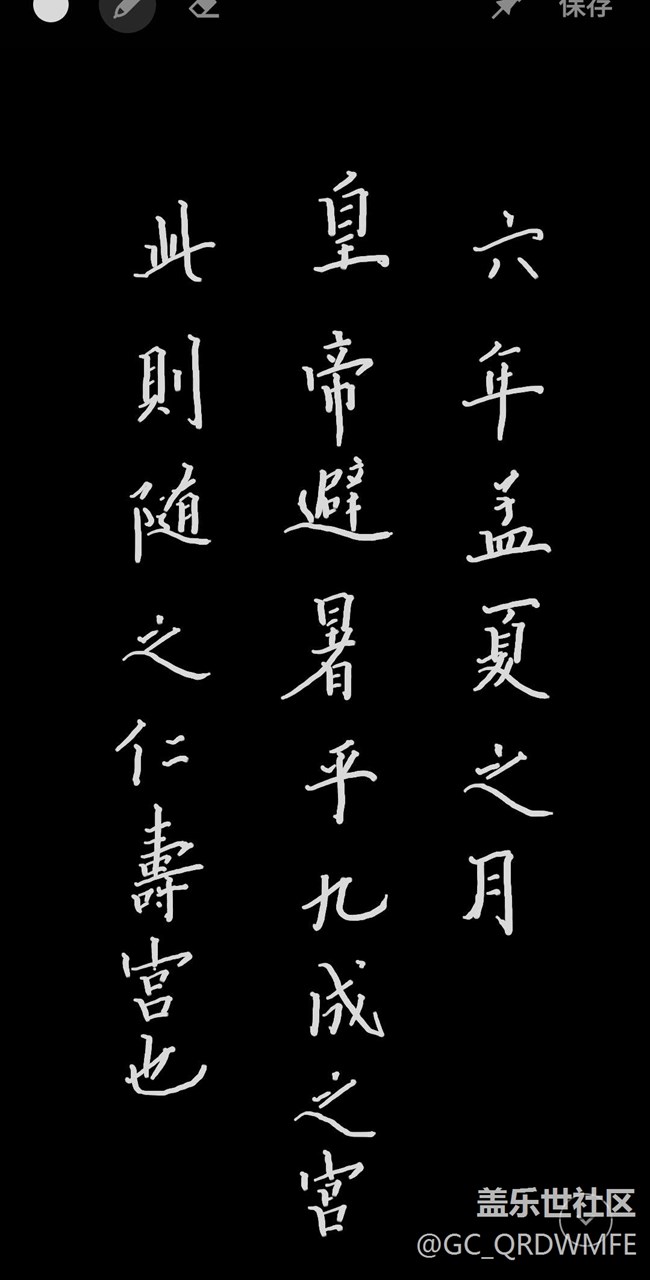 保存
六年孟夏之月
皇帝避暑乎九成之宫
此則随之仁壽宫也
盖乐世社区
@GC_QRDWMFE